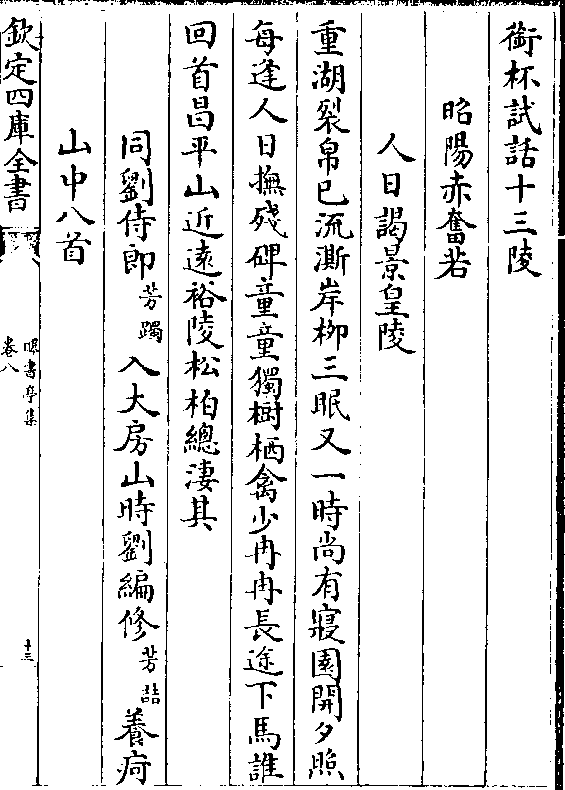 銜杯試話十三陵
昭陽赤奮若
人日謁景皇陵
重湖裂帛已流澌岸柳三眠又一時尚有寢園開夕照
每逢人日撫殘碑童童獨樹栖禽少冉冉長途下馬誰
回首昌平山近遠裕陵松柏總淒其
同劉侍郎芳躅入大房山時劉編修芳喆養疴
山中八首
欽定四庫全書
曝書亭集
卷八
十三